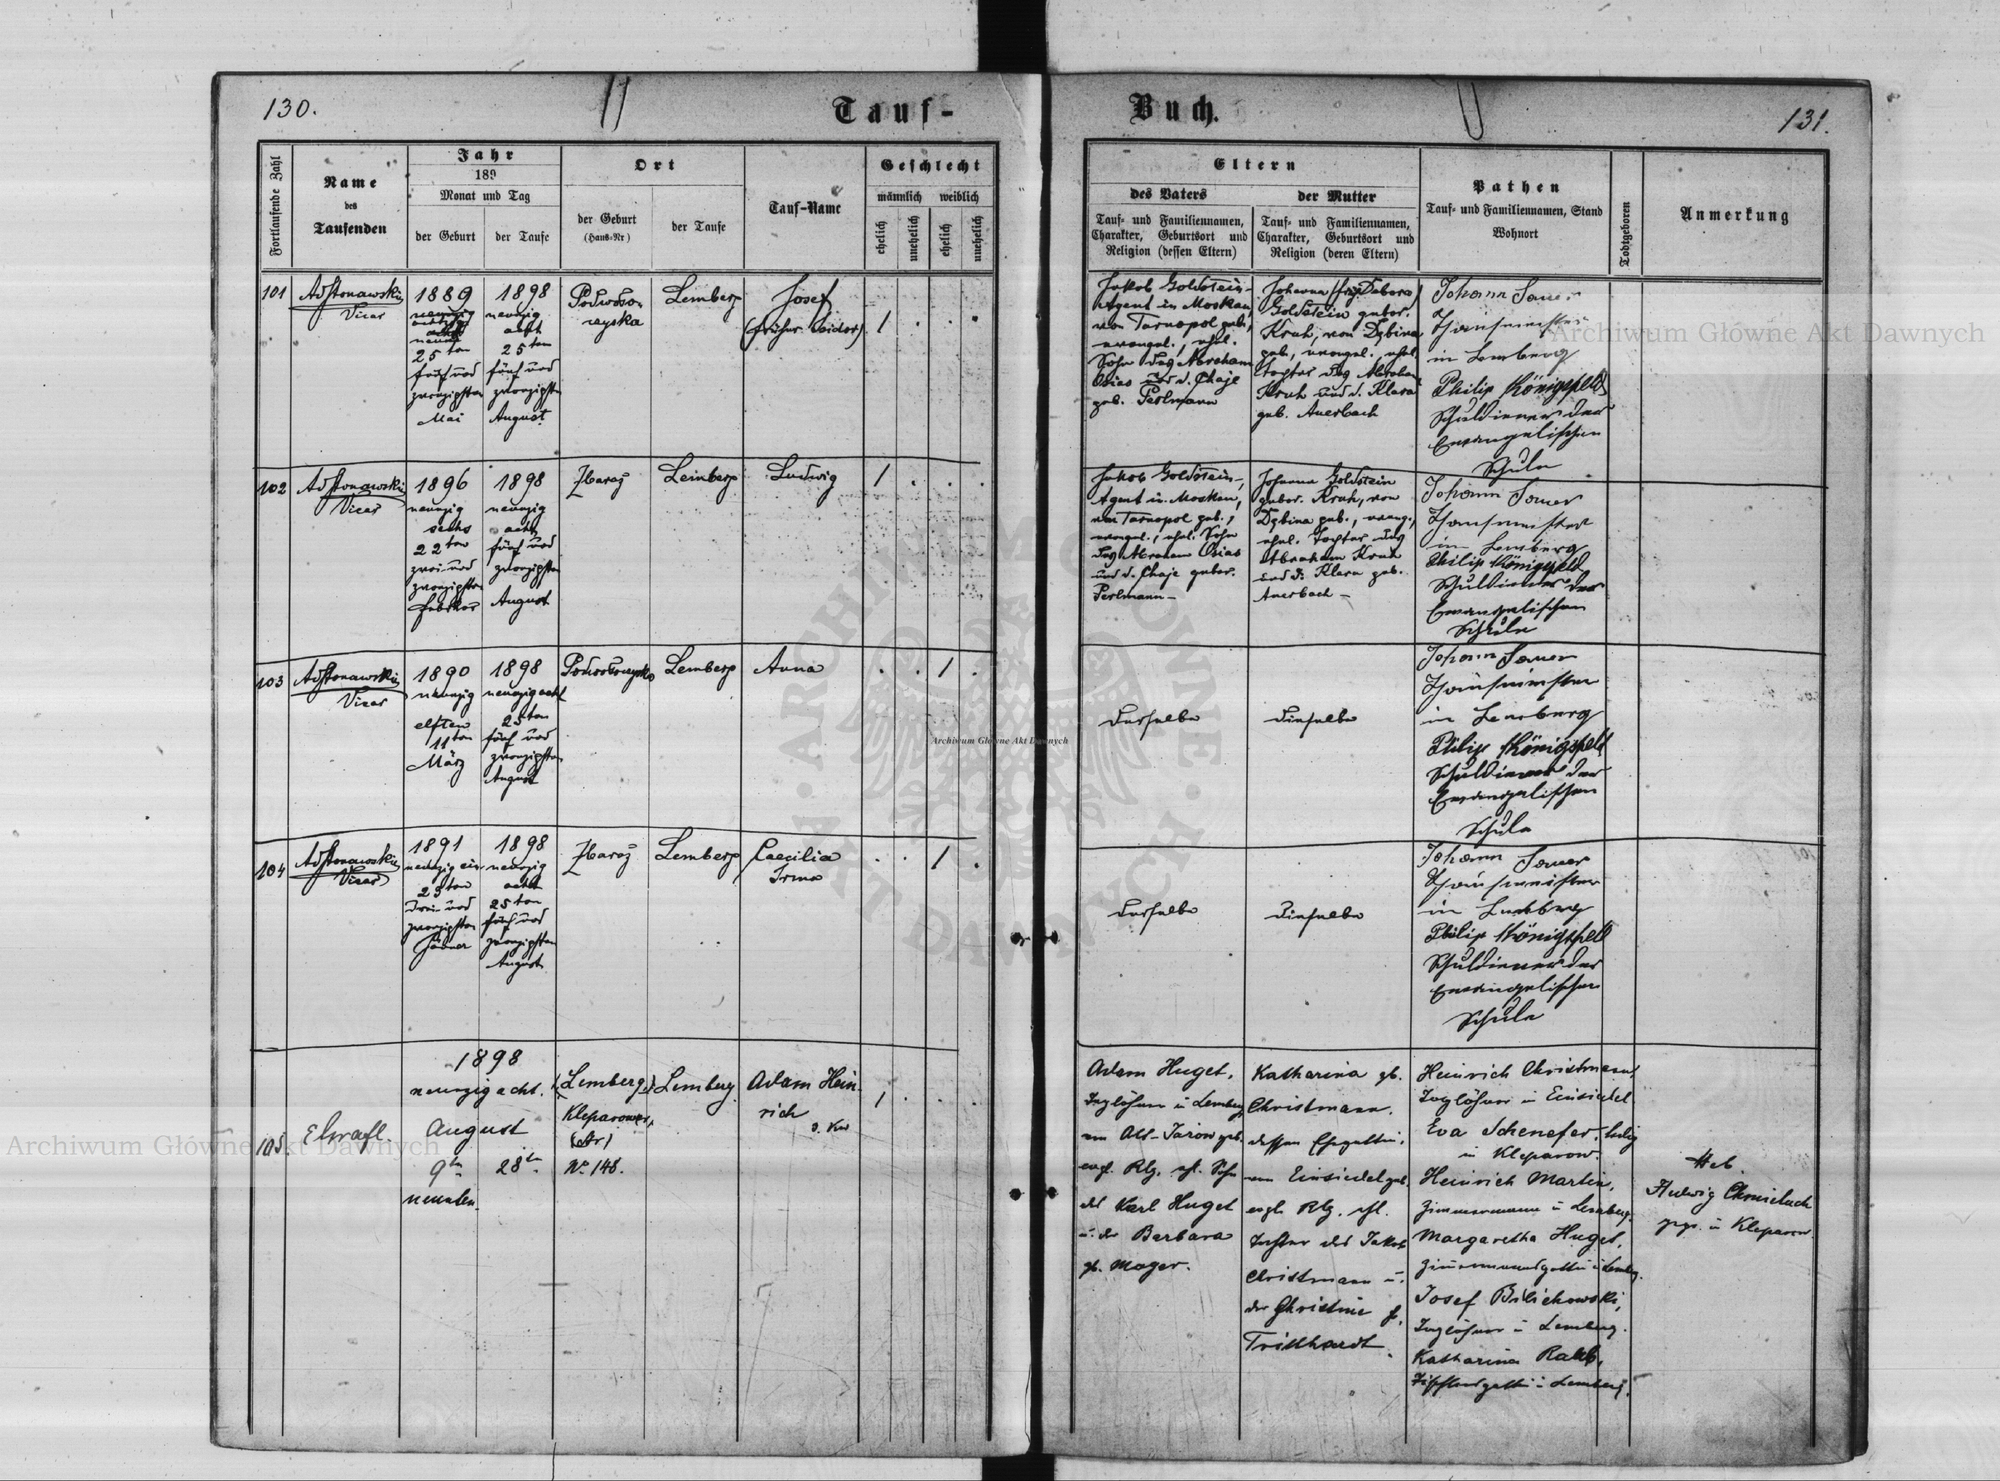 130.
Tauf-
Fortlaufende Zahl
Name
des
Taufenden
Jahr
189
Monat und Tag
der Geburt
der Taufe
Ort
der Geburt
(Haus-Nr)
der Taufe
Tauf-Name
Geschlecht
männlich weiblich
ehelich
unehelich
ehelich
unehelich
101
Vicar
1889
25ten
fünf und
zwanzigsten
Mai
1898
neunzig
acht
25ten
fünf und
zwanzigsten
August
Podwoło-
czyska
Lemberg
Josef
(früher Isidor)
1
102
Vicar
1896
neunzig
sechs
22ten
zwei und
zwanzigsten
Februar
1898
neunzig
acht
fünf und
zwanzigsten
August
Zbaraż
Lemberg
Ludwig
1
103
Vicar
1890
neunzig
elften
11ten
März
1898
neunzig acht
25ten
fünf und
zwanzigsten
August
Podwołoczyska
Lemberg
Anna
1
104
Vicar
1891
neunzig ein
23ten
drei und
zwanzigsten
Jänner
1898
neunzig
acht
25ten
fünf und
zwanzigsten
August
Zbaraż
Lemberg
Caecilia
Irma
1
105
1898
neunzig acht.
August
9ten
28ten
neunten.
Lemberg
Kleparower
Nr. 148.
Lemberg.
Adam Hein-
rich
1
Buch.
131.
Eltern
des Vaters
Tauf- und Familiennamen,
Charakter, Geburtsort und
Religion (dessen Eltern)
der Mutter
Tauf- und Familiennamen,
Charakter, Geburtsort und
Religion (deren Eltern)
Pathen
Tauf- und Familiennamen, Stand
Wohnort
Todtgeboren
Anmerkung
Jakob Goldstein-
Agent in Moskau,
von Tarnopol geb.,
evangel., ehel.
Sohn des Abraham
Osias und d. Chaje
geb. Perlmann
Johanna (früh. Debora)
Goldstein gebor.
Kruh, von Dębina
geb., evangel., ehel.
Tochter des Abraham
Kruh und d. Klara
geb. Auerbach
Johann Sauer
in Lemberg
Philip Königsfeld
Schuldiener der
Evangelischen
Schule
Jakob Goldstein-,
Agent in Moskau,
von Tarnopol geb.,
evangel., ehel. Sohn
des Abraham Osias
und d. Chaje gebor.
Perlmann-
Johanna Goldstein
gebor. Kruh, von
Dębina geb., evang.,
ehel. Tochter des
Abraham Kruh
und d. Klara geb.
Auerbach-
Johann Sauer
in Lemberg
Philip Königsfeld
Schuldiener der
Evangelischen
Schule
derselbe
dieselbe
Johann Sauer
in Lemberg
Philip Königsfeld
Schuldiener der
Evangelischen
Schule
derselbe
dieselbe
Johann Sauer
in Lemberg
Philip Königsfeld
Schuldiener der
Evangelischen
Schule
Adam Huget,
Taglöhner in Lemberg
evgl. Rlg. ehl. Sohn
des Karl Huget
u. der Barbara
gb. Mager.
Katharina gb.
Christmann.
dessen Ehegattin,
von Einsiedel geb.
evgl. Rlg. ehl.
Tochter des Jakob
Christmann u.
der Christine g.
Trillhardt.
Heinrich Christmann,
Taglöhner in Einsiedel
Eva Schenefer, ledig
in Kleparow.
Heinrich Martin,
Zimmermann in Lemberg.
Margaretha Huget,
Zimmermannsgattin in Lemberg.
Josef Bilichowski,
Taglöhner in Lemberg.
Katharina
in Lemberg.
Heb.
in Kleparow.
Archiwum Główne Akt Dawnych
Archiwum Główne Akt Dawnych
Archiwum Główne Akt Dawnych
ARCHIWUM GŁÓWNE AKT DAWNYCH